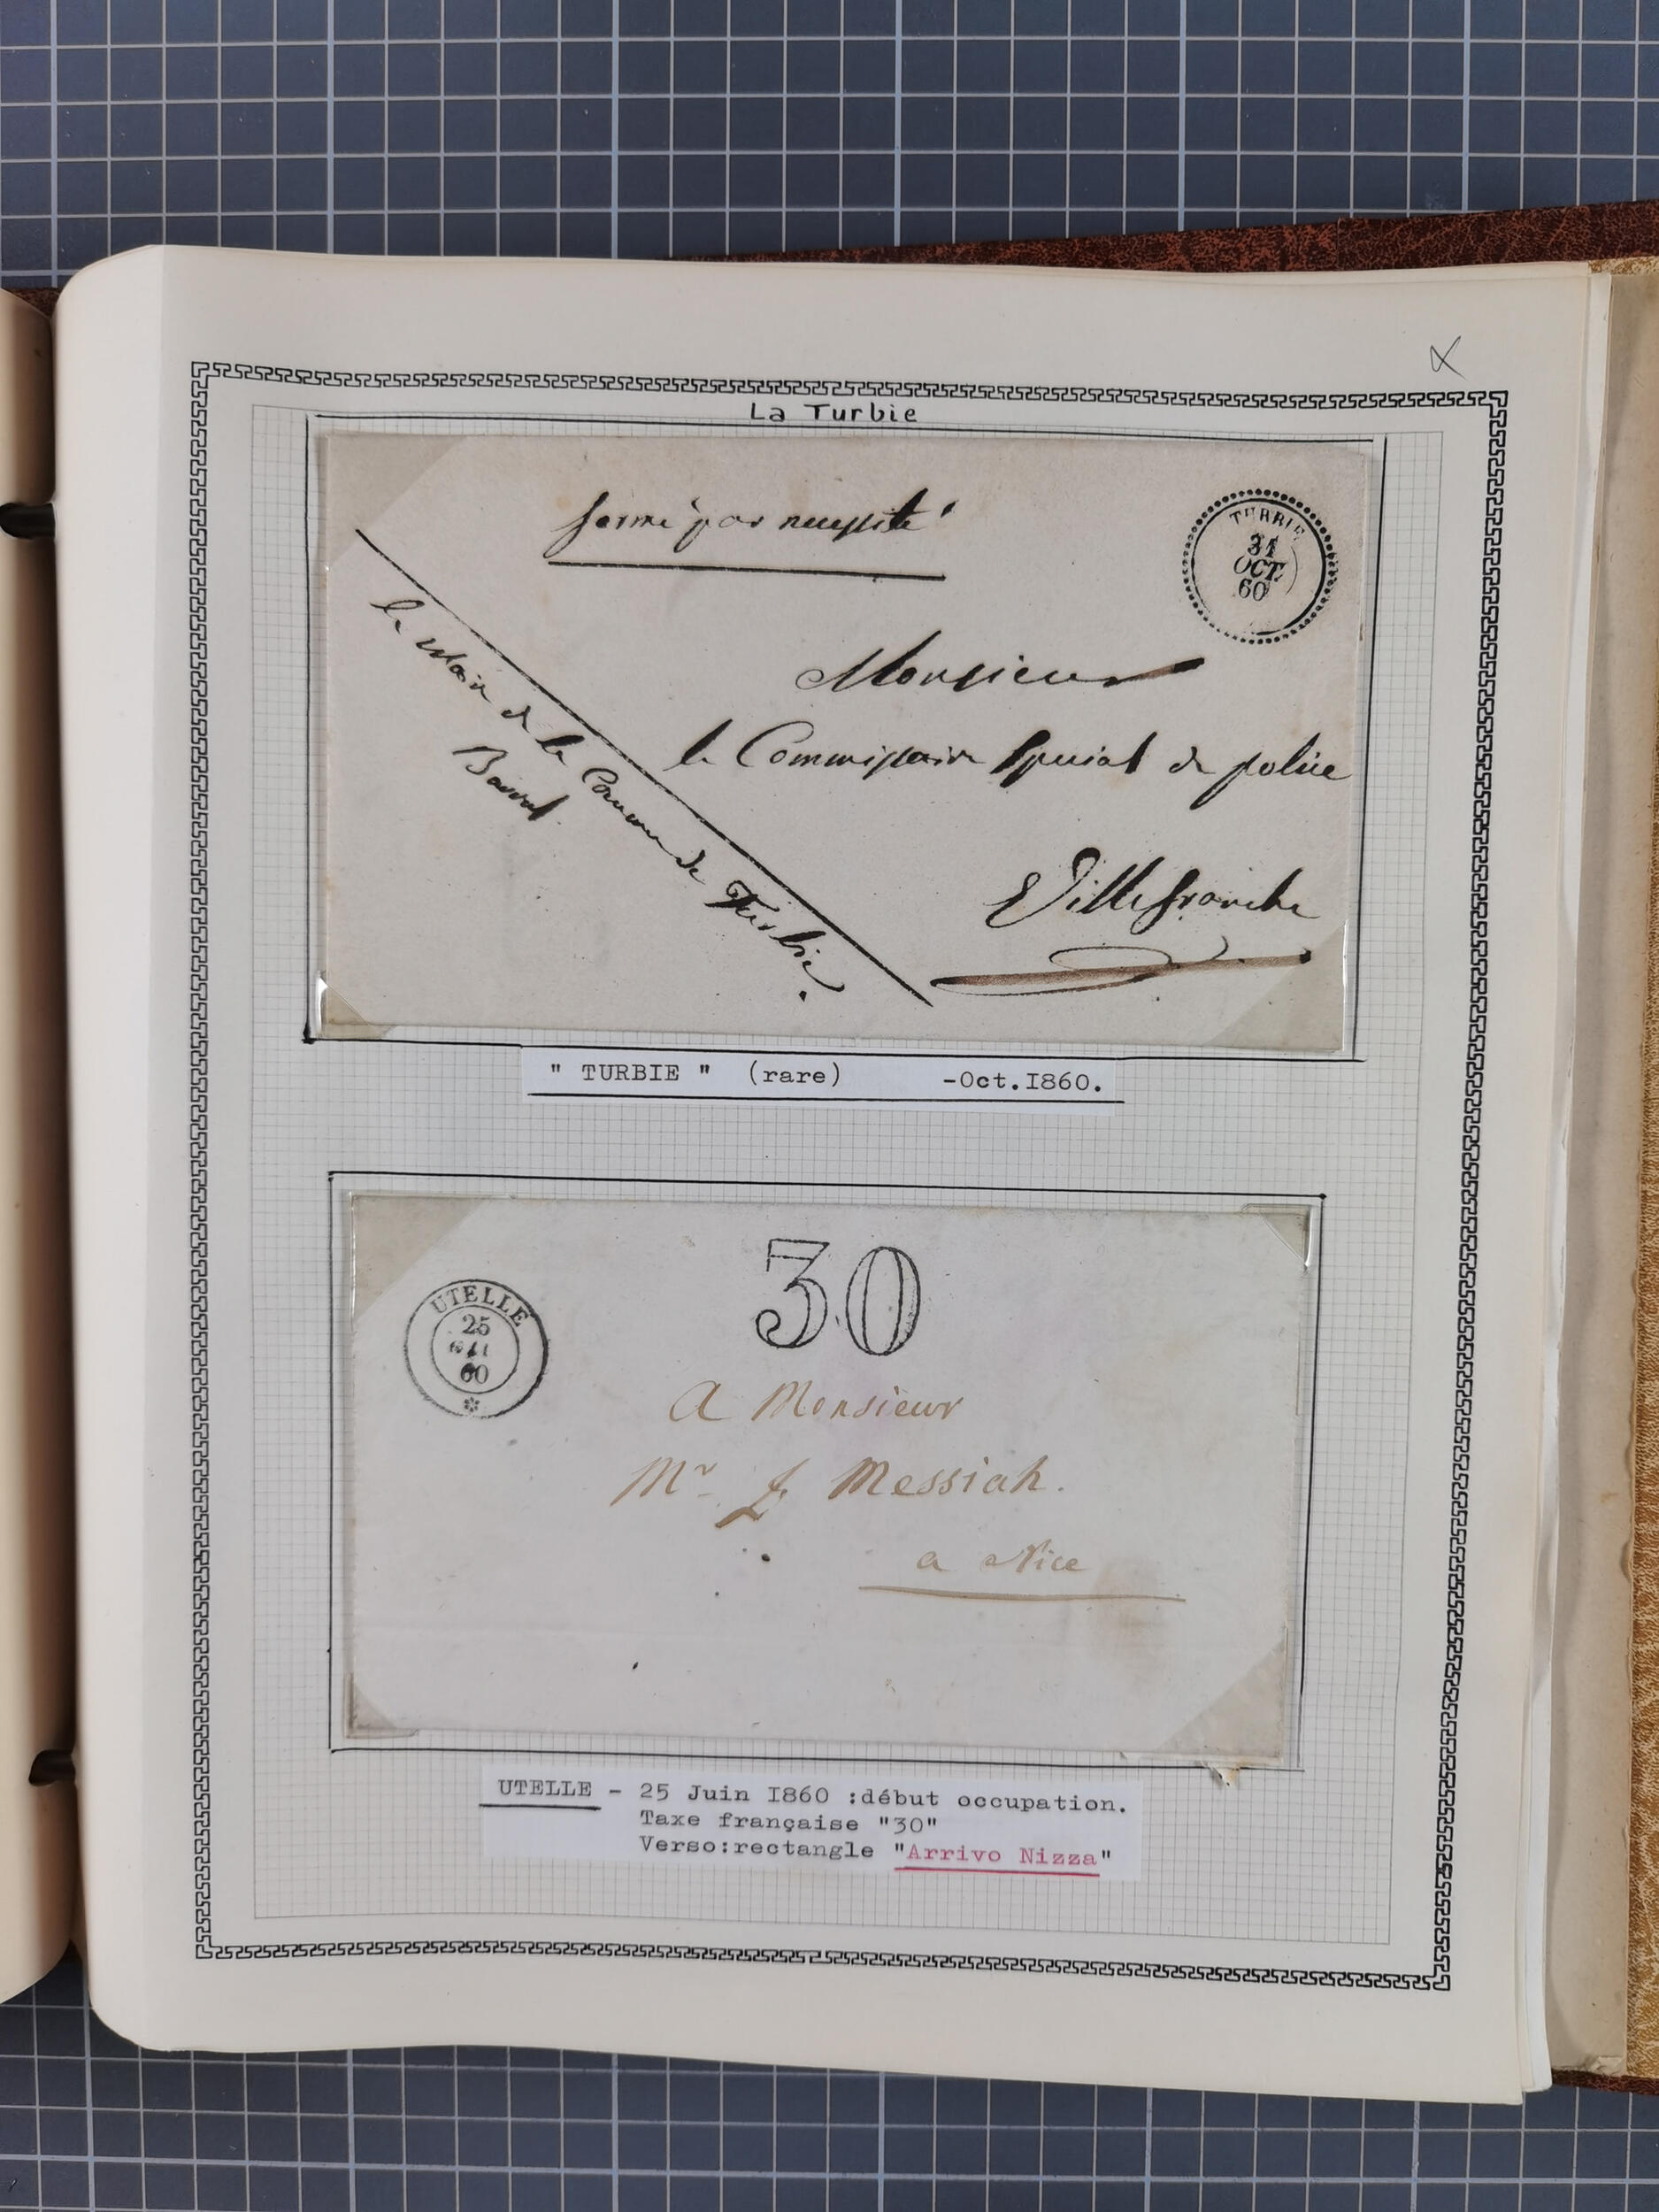 La Turbie
fermé par necessité
TURBIE
31
OCT.
60
Monsieur
le Commissaire Special de police
Villefranche
le Maire de la Commune de Turbie
" TURBIE " (rare) -Oct.I860.
30
UTELLE
25
60
A Monsieur
Mr J Messiah.
a Nice
UTELLE - 25 Juin I860 :début occupation.
Taxe française "30"
Verso:rectangle "Arrivo Nizza"